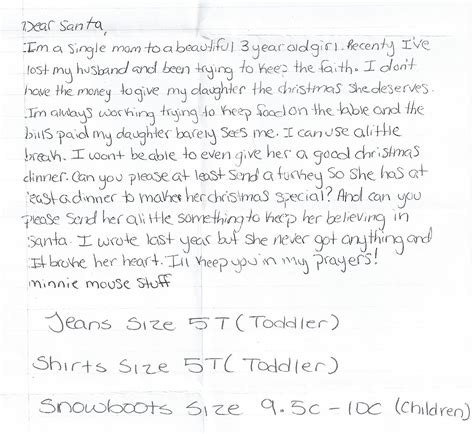 Dear Santa,
I'm a single mom to a beautiful 3 year old girl. Recenty I've
lost my husband and been trying to keep the faith. I don't
have the money to give my daughter the christmas she deserves.
I'm always working trying to keep food on the table and the
bills paid my daughter barely sees me. I can use a little
break. I wont be able to even give her a good christmas
dinner. Can you please at least send a turkey so she has at
least a dinner to make her christmas special? And can you
please send her a little something to keep her believing in
Santa. I wrote last year but she never got anything and
It broke her heart. I'll keep you in my prayers!
minnie mouse stuff
Jeans Size 5T (Toddler)
Shirts Size 5T (Toddler)
Snowboots Size 9.5c - 10c (Children)